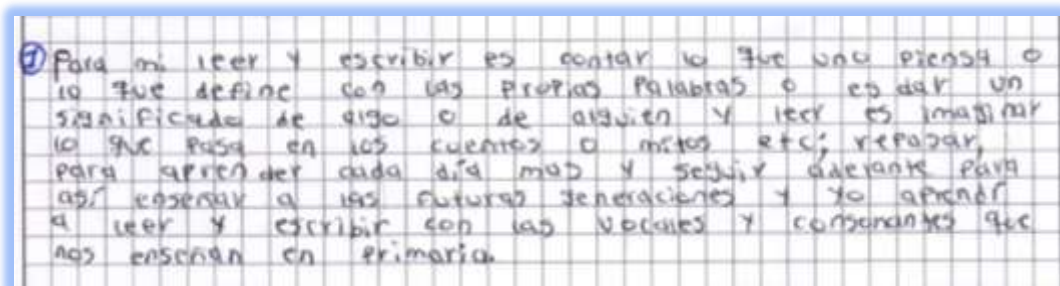 ① Para mi leer y escribir es contar lo que uno piensa o
lo que define con las propias palabras o es dar un
significado de algo o de alguien y leer es imaginar
lo que pasa en los cuentos o mitos etc; repasar,
para aprender cada día mas y seguir adelante para
así enseñar a las futuras generaciones y yo aprendí
a leer y escribir con las vocales y consonantes que
nos enseñan en primaria.